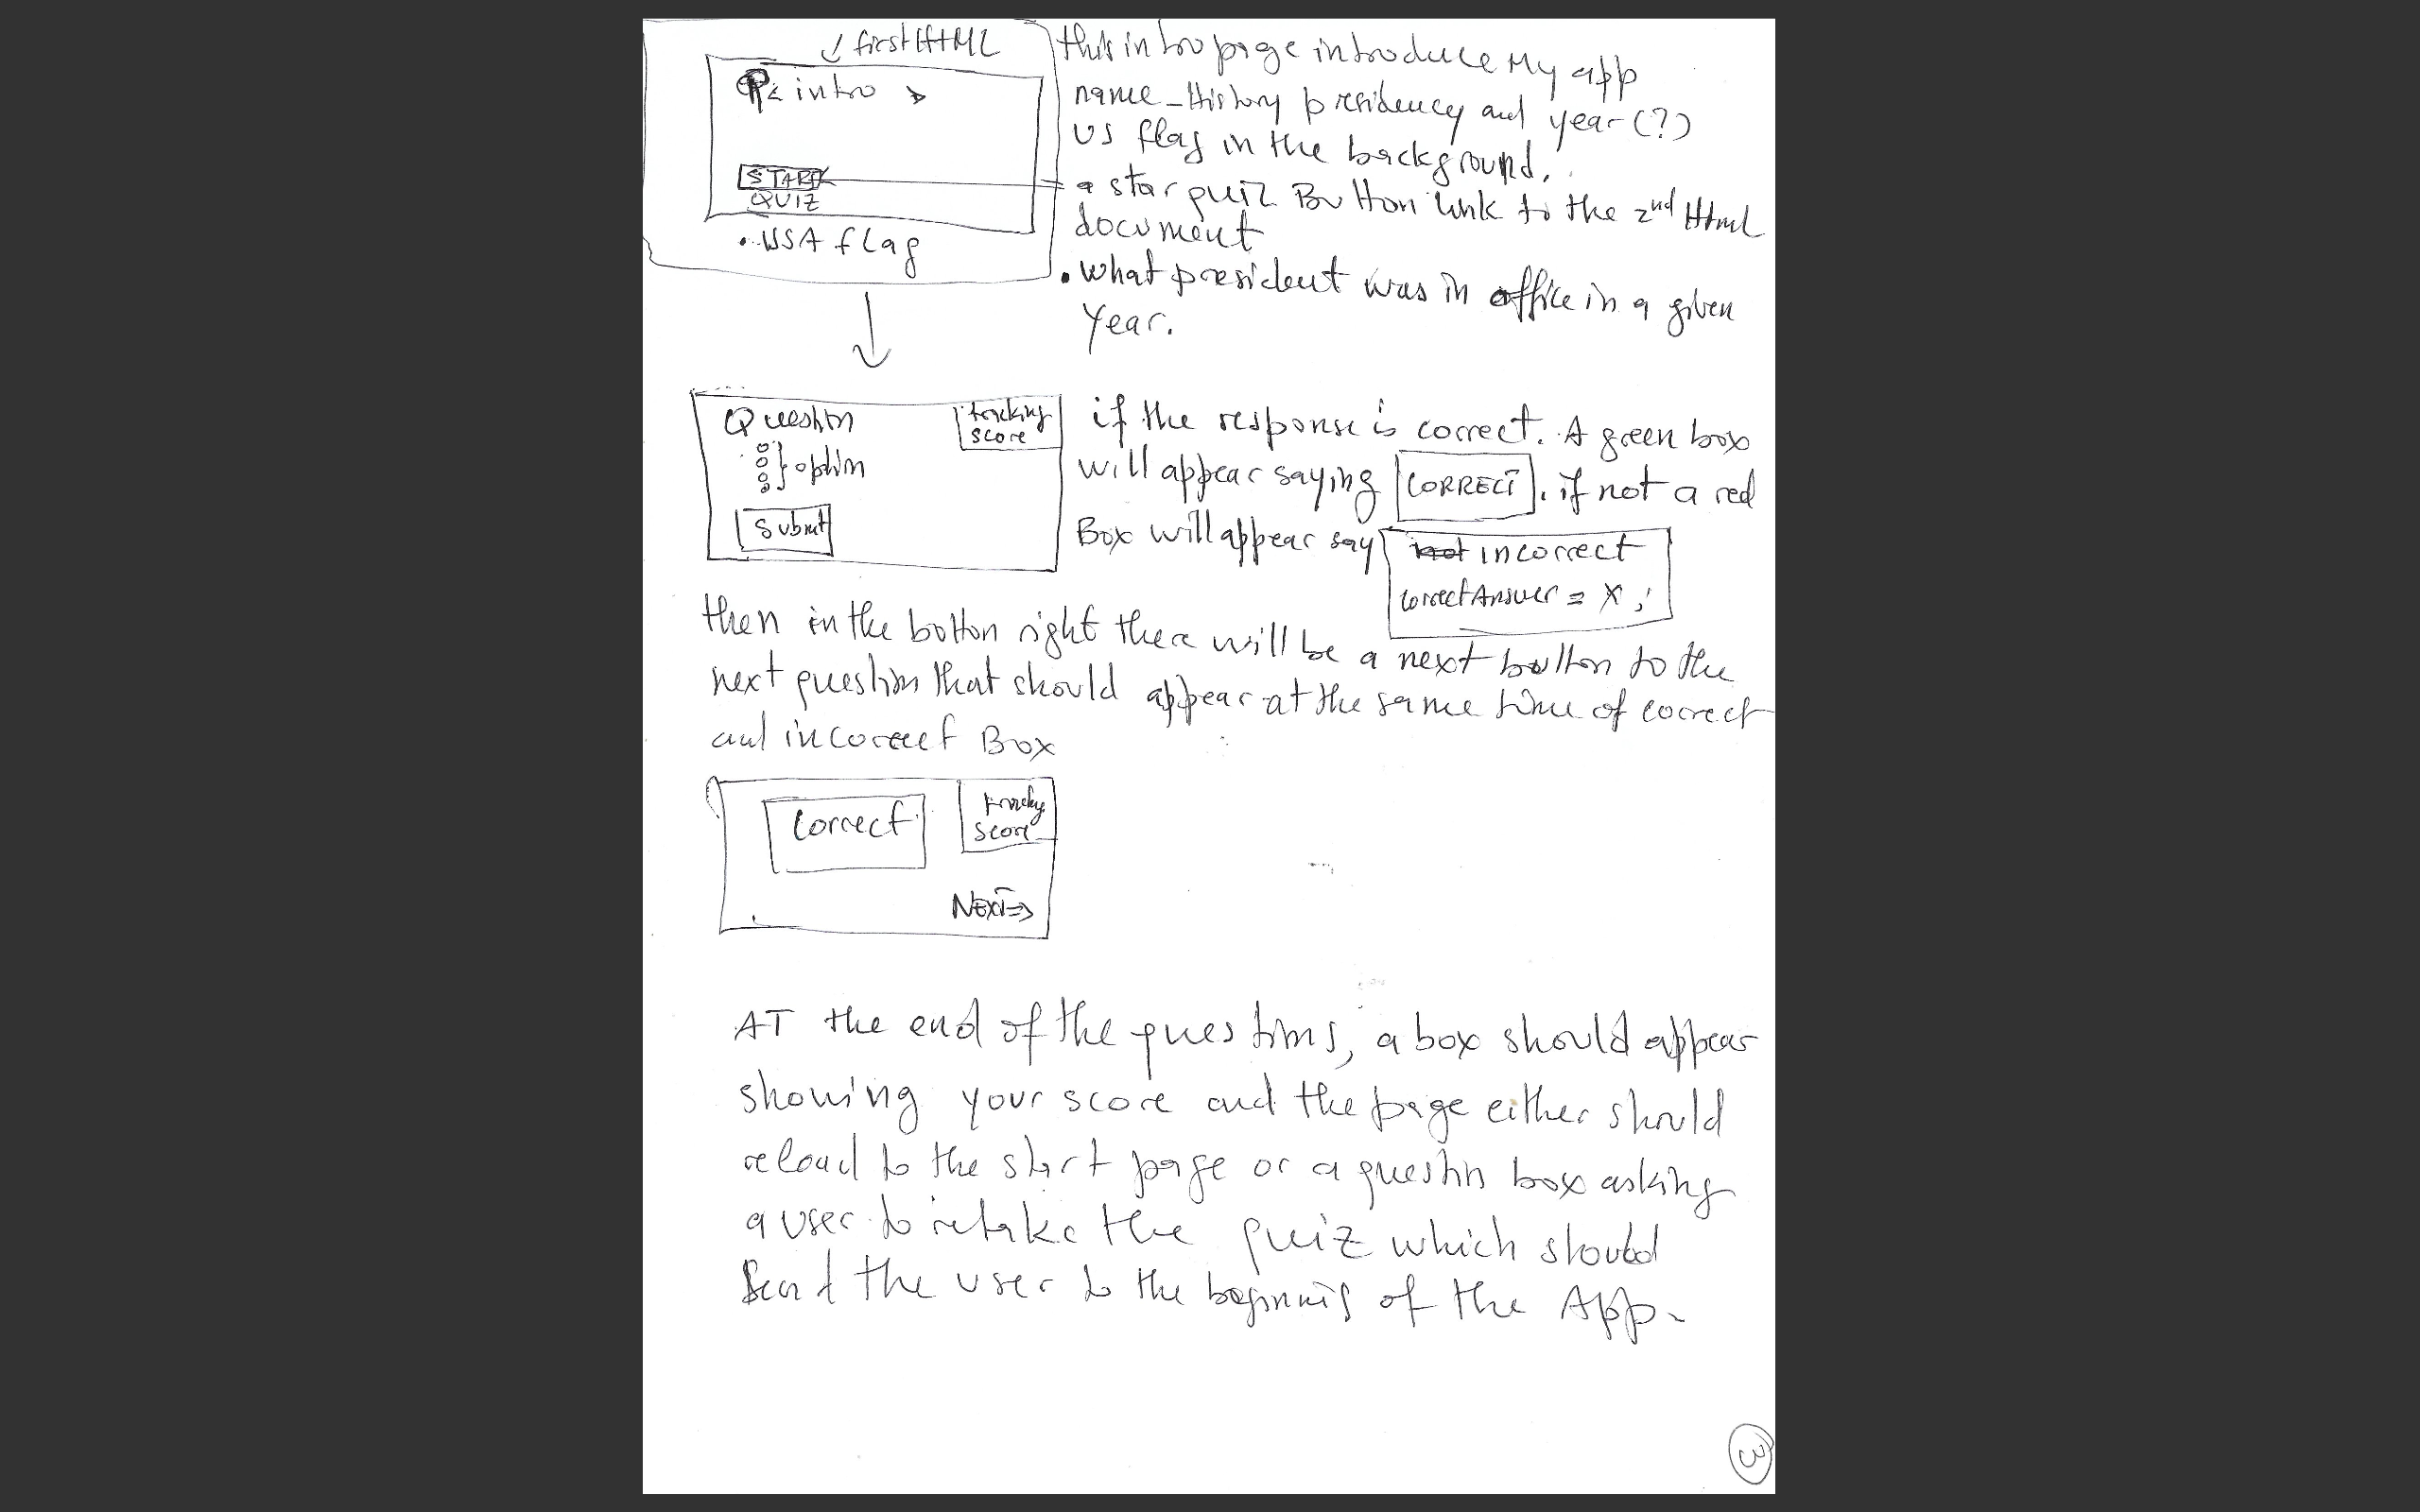 first HTML
intro
START
QUIZ
• USA flag
this intro page introduce My app
name - History presidency and year (?)
US flag in the background.
a star quiz Button link to the 2nd Html
document
• what president was in office in a given
Year.
Question
option
Submit
tracking
score
if the response is correct. A green box
will appear saying CORRECT. if not a red
Box will appear say
not incorrect
correct Answer = X;
then in the botton right there will be a next button to the
next question that should appear at the same time of correct
and incorrect Box
Correct
tracking
score
NEXT⇒
AT the end of the questions, a box should appear
showing your score and the page either should
reload to the start page or a question box asking
a user to retake the quiz which should
send the user to the beginning of the App.
3